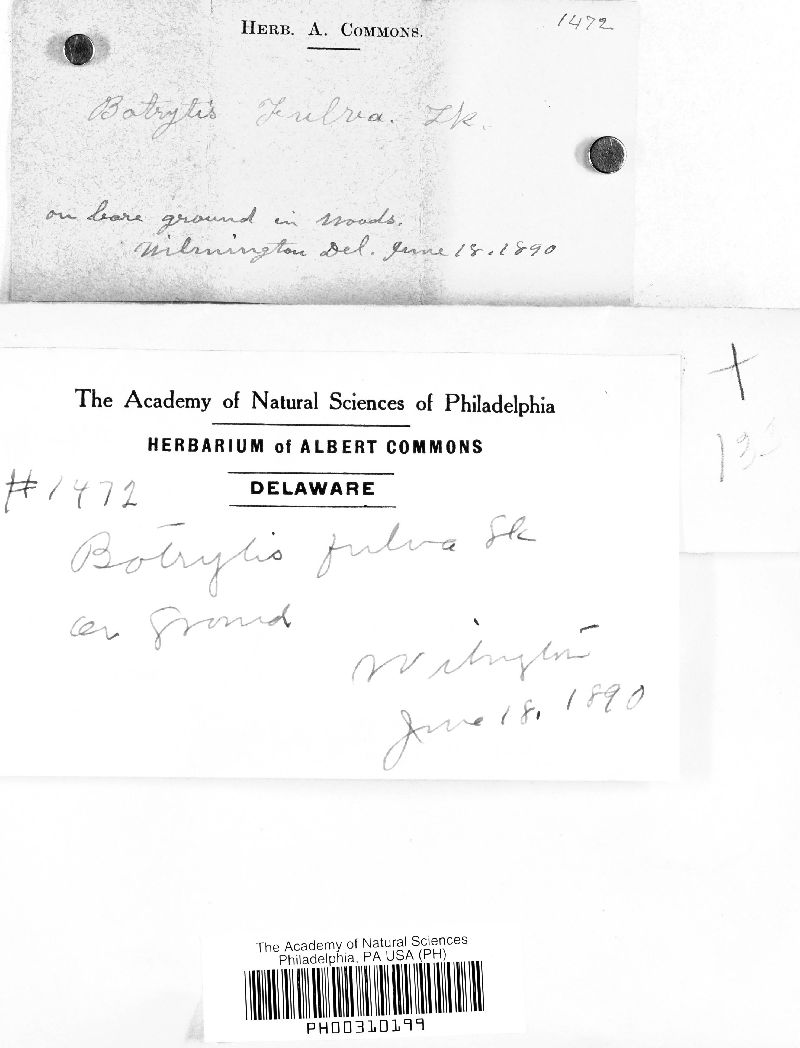 HERB. A. COMMONS.
1472
Botrytis Fulva. Lk.
on bare ground in woods.
Wilmington Del. June 18. 1890
+
The Academy of Natural Sciences of Philadelphia
HERBARIUM of ALBERT COMMONS
DELAWARE
#1472
Botrytis fulva Lk
on ground
Wilmington
June 18, 1890
The Academy of Natural Sciences
Philadelphia, PA USA (PH)
PH00310199